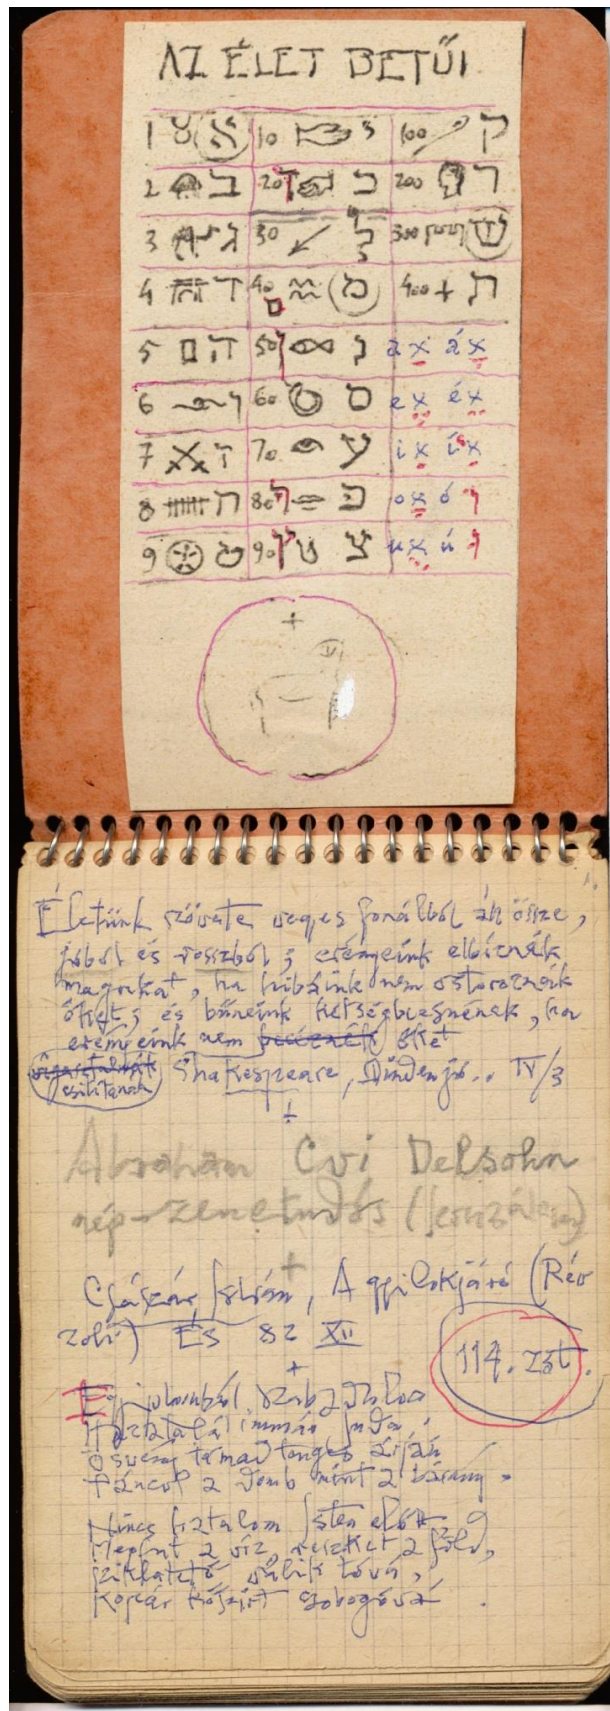 AZ ÉLET BETŰI
1 א 10 י 100 ק
2 ב 20 ך כ 200 ר
3 ג 30 ל 300 ש
4 ד 40 ם מ 400 ת
5 ה 50 ן נ a x á x
6 ו 60 ס e x é x
7 ז 70 ע i x í x
8 ח 80 ף פ o x ó ו
9 ט 90 ץ צ u x ú ו
Életünk szövete vegyes fonálból áll össze,
jóból és rosszból; erényeink elbíznák
magukat, ha hibáink nem ostoroznák
őket; és bűneink kétségbeesnének, ha
erényeink nem őket
Shakespeare, Minden jó.. IV/3
Abrahám Cvi Delsohn
nép-zenetudós (Jeruzsálem)
Császár István, A gyilokjáró (Rév
ÉS 82 XII
114. zst.
Egyiptomból szabadulva
támad tenger árján
táncol a domb mint a bárány.
Nincs hatalom Isten előtt
Megfut a víz, reszket a föld,
sziklatető válik tóvá,
kopár kőszirt zobogóvá.